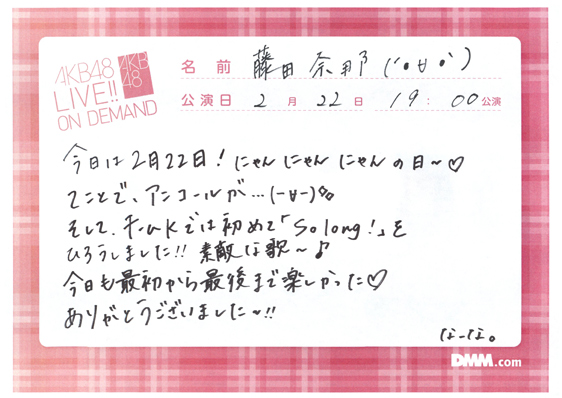 AKB48
LIVE!!
ON DEMAND
AKB
48
名前 藤田奈那(´•ㅂ•`)
公演日 2月22日 19:00公演
今日は2月22日!にゃんにゃんにゃんの日~♡
てことで、アンコールが…(-ㅂ-)
そして、チームKでは初めて「So long!」を
ひろうしました!!素敵な歌~♪
今日も最初から最後まで楽しかった♡
ありがとうございました~!!
なーな。
DMM.com